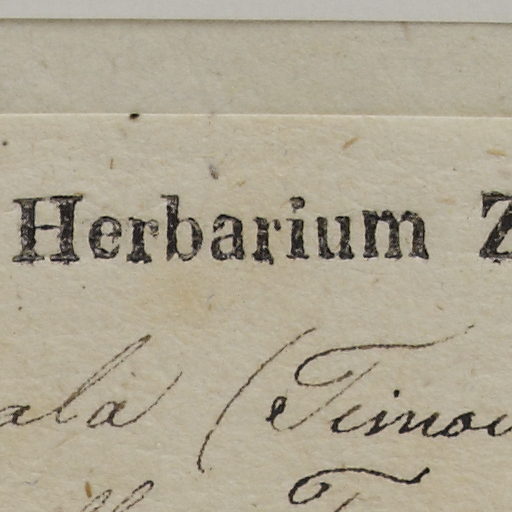 Herbarium Z
ala (Timo